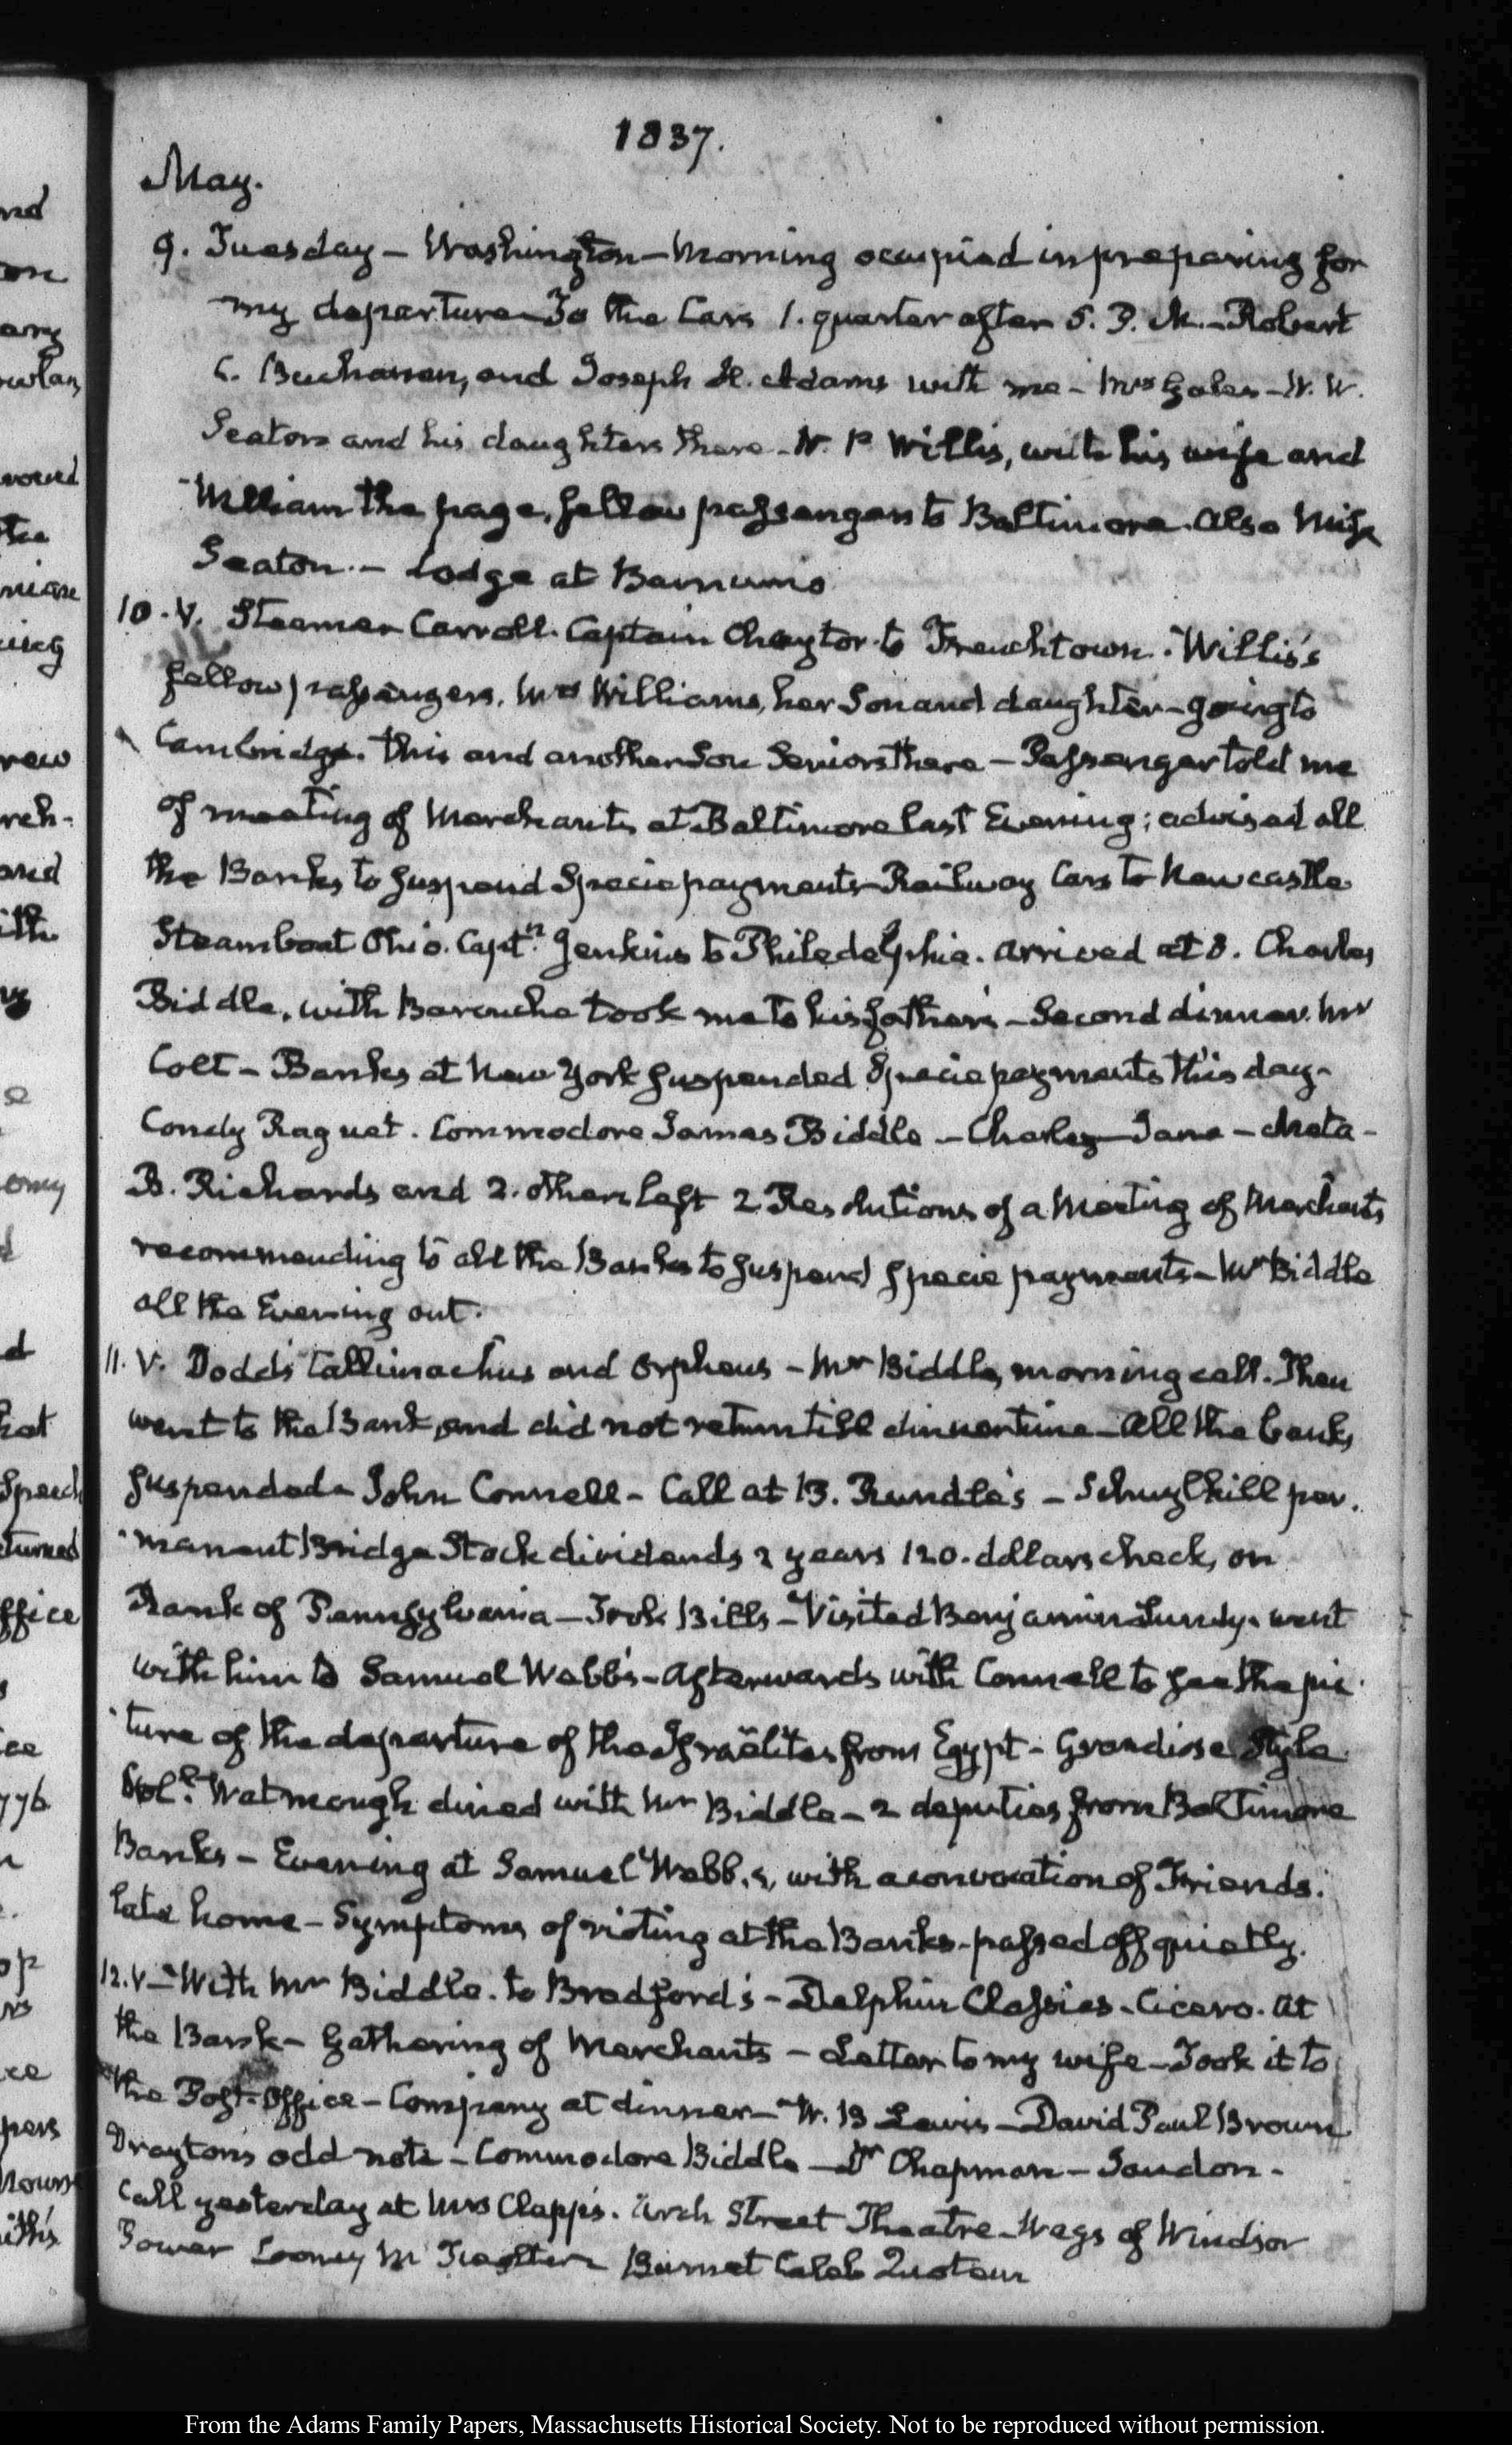 1837.
May.
9. Tuesday – Washington – Morning occupied in preparing for
my departure – To the Cars 1. quarter after 5. P. M. – Robert
C. Buchanan, and Joseph H. Adams with me – Mrs Gales – W. W.
Seaton and his daughters there – N. P. Willis, with his wife and
William the page, fellow passengers to Baltimore. Also Miss
Seaton. – Lodge at Barnums
10. V. Steamer Carroll. Captain Chaytor to Frenchtown. Willis's
fellow passengers. Mrs Williams, her Son and daughter – going to
Cambridge. this and another Son Seniors there – Passenger told me
of meeting of Merchants at Baltimore last Evening; advised all
the Banks to suspend Specie payments – Railway Cars to Newcastle
Steamboat Ohio. Captn. Jenkins to Philadelphia. arrived at 8. Charles
Biddle, with Barouche took me to his father's – Second dinner. Mr
Colt – Banks at New York suspended Specie payments this day –
Condy Raguet. Commodore James Biddle – Charles – Jane – Meta –
B. Richards and 2. others left 2 Resolutions of a Meeting of Merchants
recommending to all the Banks to suspend specie payments – Mr Biddle
all the Evening out.
11. V. Dodd's Callimachus and Orpheus – Mr Biddle, morning call. Then
went to the Bank, and did not return till dinner time – All the banks
suspended – John Connell – Call at B. Rundle's – Schuylkill per-
manent Bridge Stock dividends 2 years 120. dollars check, on
Bank of Pennsylvania – Took Bills – Visited Benjamin Lundy. went
with him to Samuel Webb's – Afterwards with Connell to see the pic-
ture of the departure of the Israëlites from Egypt – Grandiose Style
Coll. Watmough dined with Mr Biddle – 2 deputies from Baltimore
Banks – Evening at Samuel Webb's, with a convocation of Friends.
late home – Symptoms of rioting at the Banks – passed off quietly.
12. V – With Mr Biddle. to Bradford's – Delphin Classics – Cicero. At
the Bank – Gathering of Merchants – Letter to my wife – Took it to
the Post-Office – Company at dinner – W. B Lewis – David Paul Brown
Drayton's odd note – Commodore Biddle – Dr Chapman –
Call yesterday at Mrs Clapp's. Arch Street Theatre – Wags of Windsor
Looney Mc Twolter Burnet Caleb Quotem
nd
on
any
wlan
the
rew
reh-
and
ith
d
hat
Speech
turned
ffice
ce
776
op
ce
pers
this
From the Adams Family Papers, Massachusetts Historical Society. Not to be reproduced without permission.